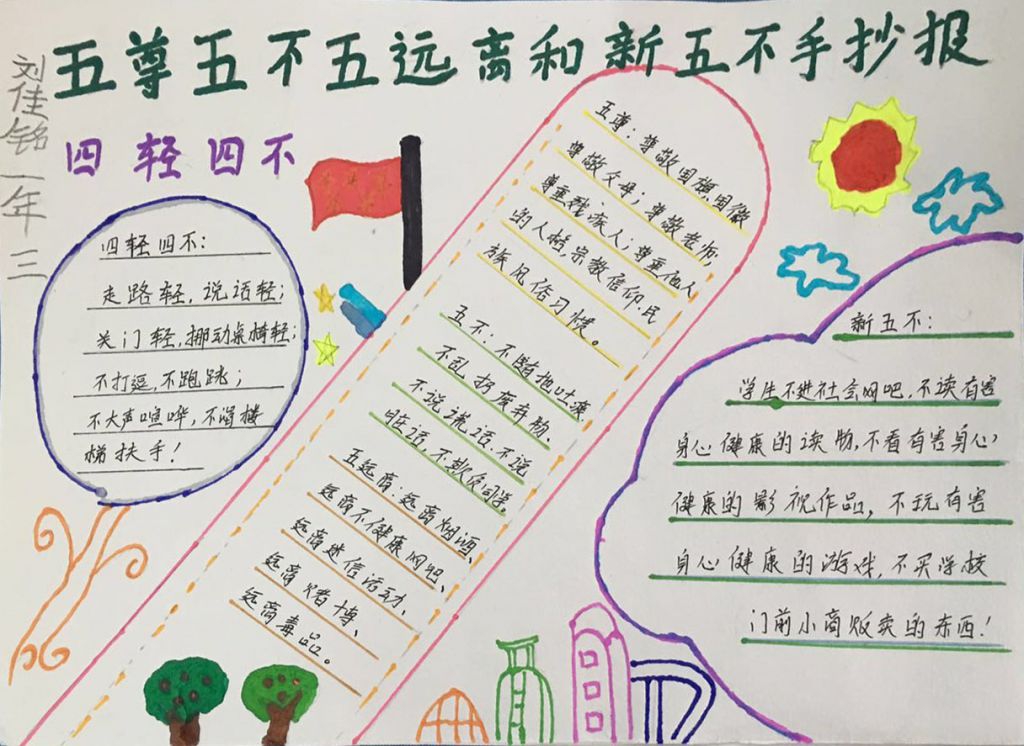 五尊五不五远离和新五不手抄报
刘佳铭一年三
四轻四不
四轻四不:
走路轻,说话轻;
关门轻,挪动桌椅轻;
不打逗,不跑跳;
不大声喧哗,不滑楼
梯扶手!
五尊:尊敬国旗国徽
尊敬父母;尊敬老师;
尊重残疾人;尊重他人
的人格.宗教信仰.民
族风俗习惯。
五不:不随地吐痰.
不乱扔废弃物、
不说谎话.不说
脏话,不欺负同学,
五远离:远离烟酒、
远离不健康网吧、
远离迷信活动、
远离赌博、
远离毒品。
新五不:
学生不进社会网吧,不读有害
身心健康的读物,不看有害身心
健康的影视作品,不玩有害
身心健康的游戏,不买学校
门前小商贩卖的东西!